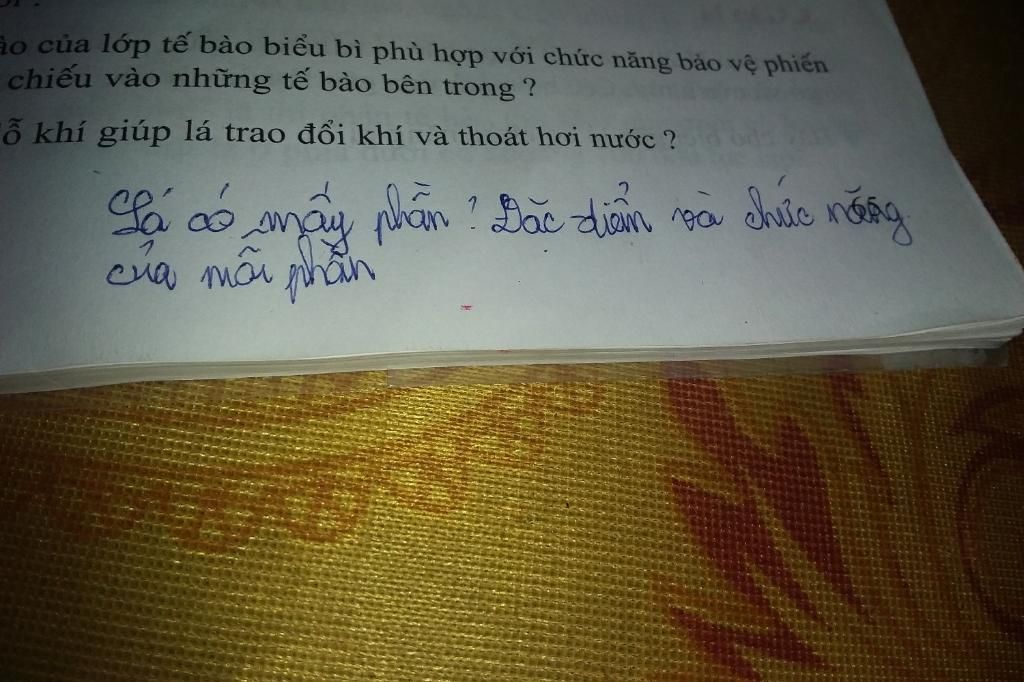 ào của lớp tế bào biểu bì phù hợp với chức năng bảo vệ phiến
chiếu vào những tế bào bên trong ?
ỗ khí giúp lá trao đổi khí và thoát hơi nước ?
Lá có mấy phần ? Đặc điểm và chức năng
của mỗi phần